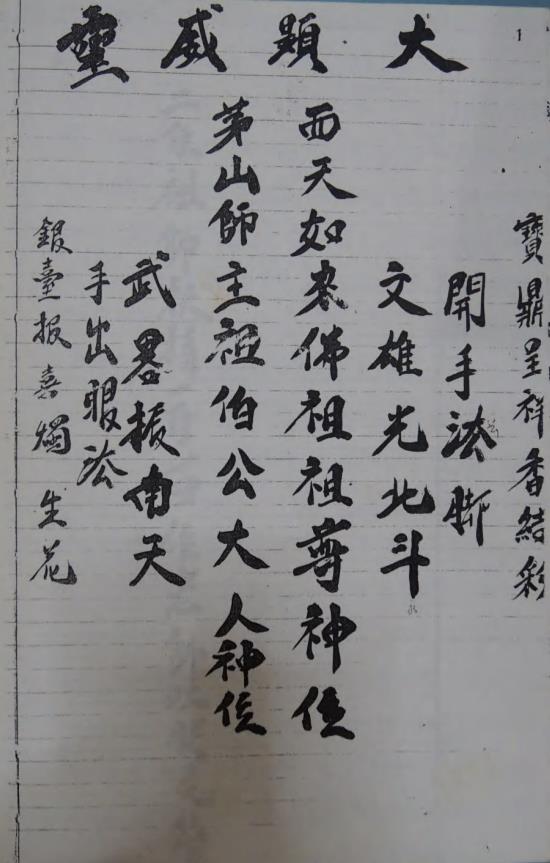 大顕威霊
寶鼎呈祥香結彩
開手法脚
文雄光北斗
西天如來佛祖祖尊神位
茅山師主祖伯公大人神位
武畧振南天
手出眼法
銀臺报喜燭生花